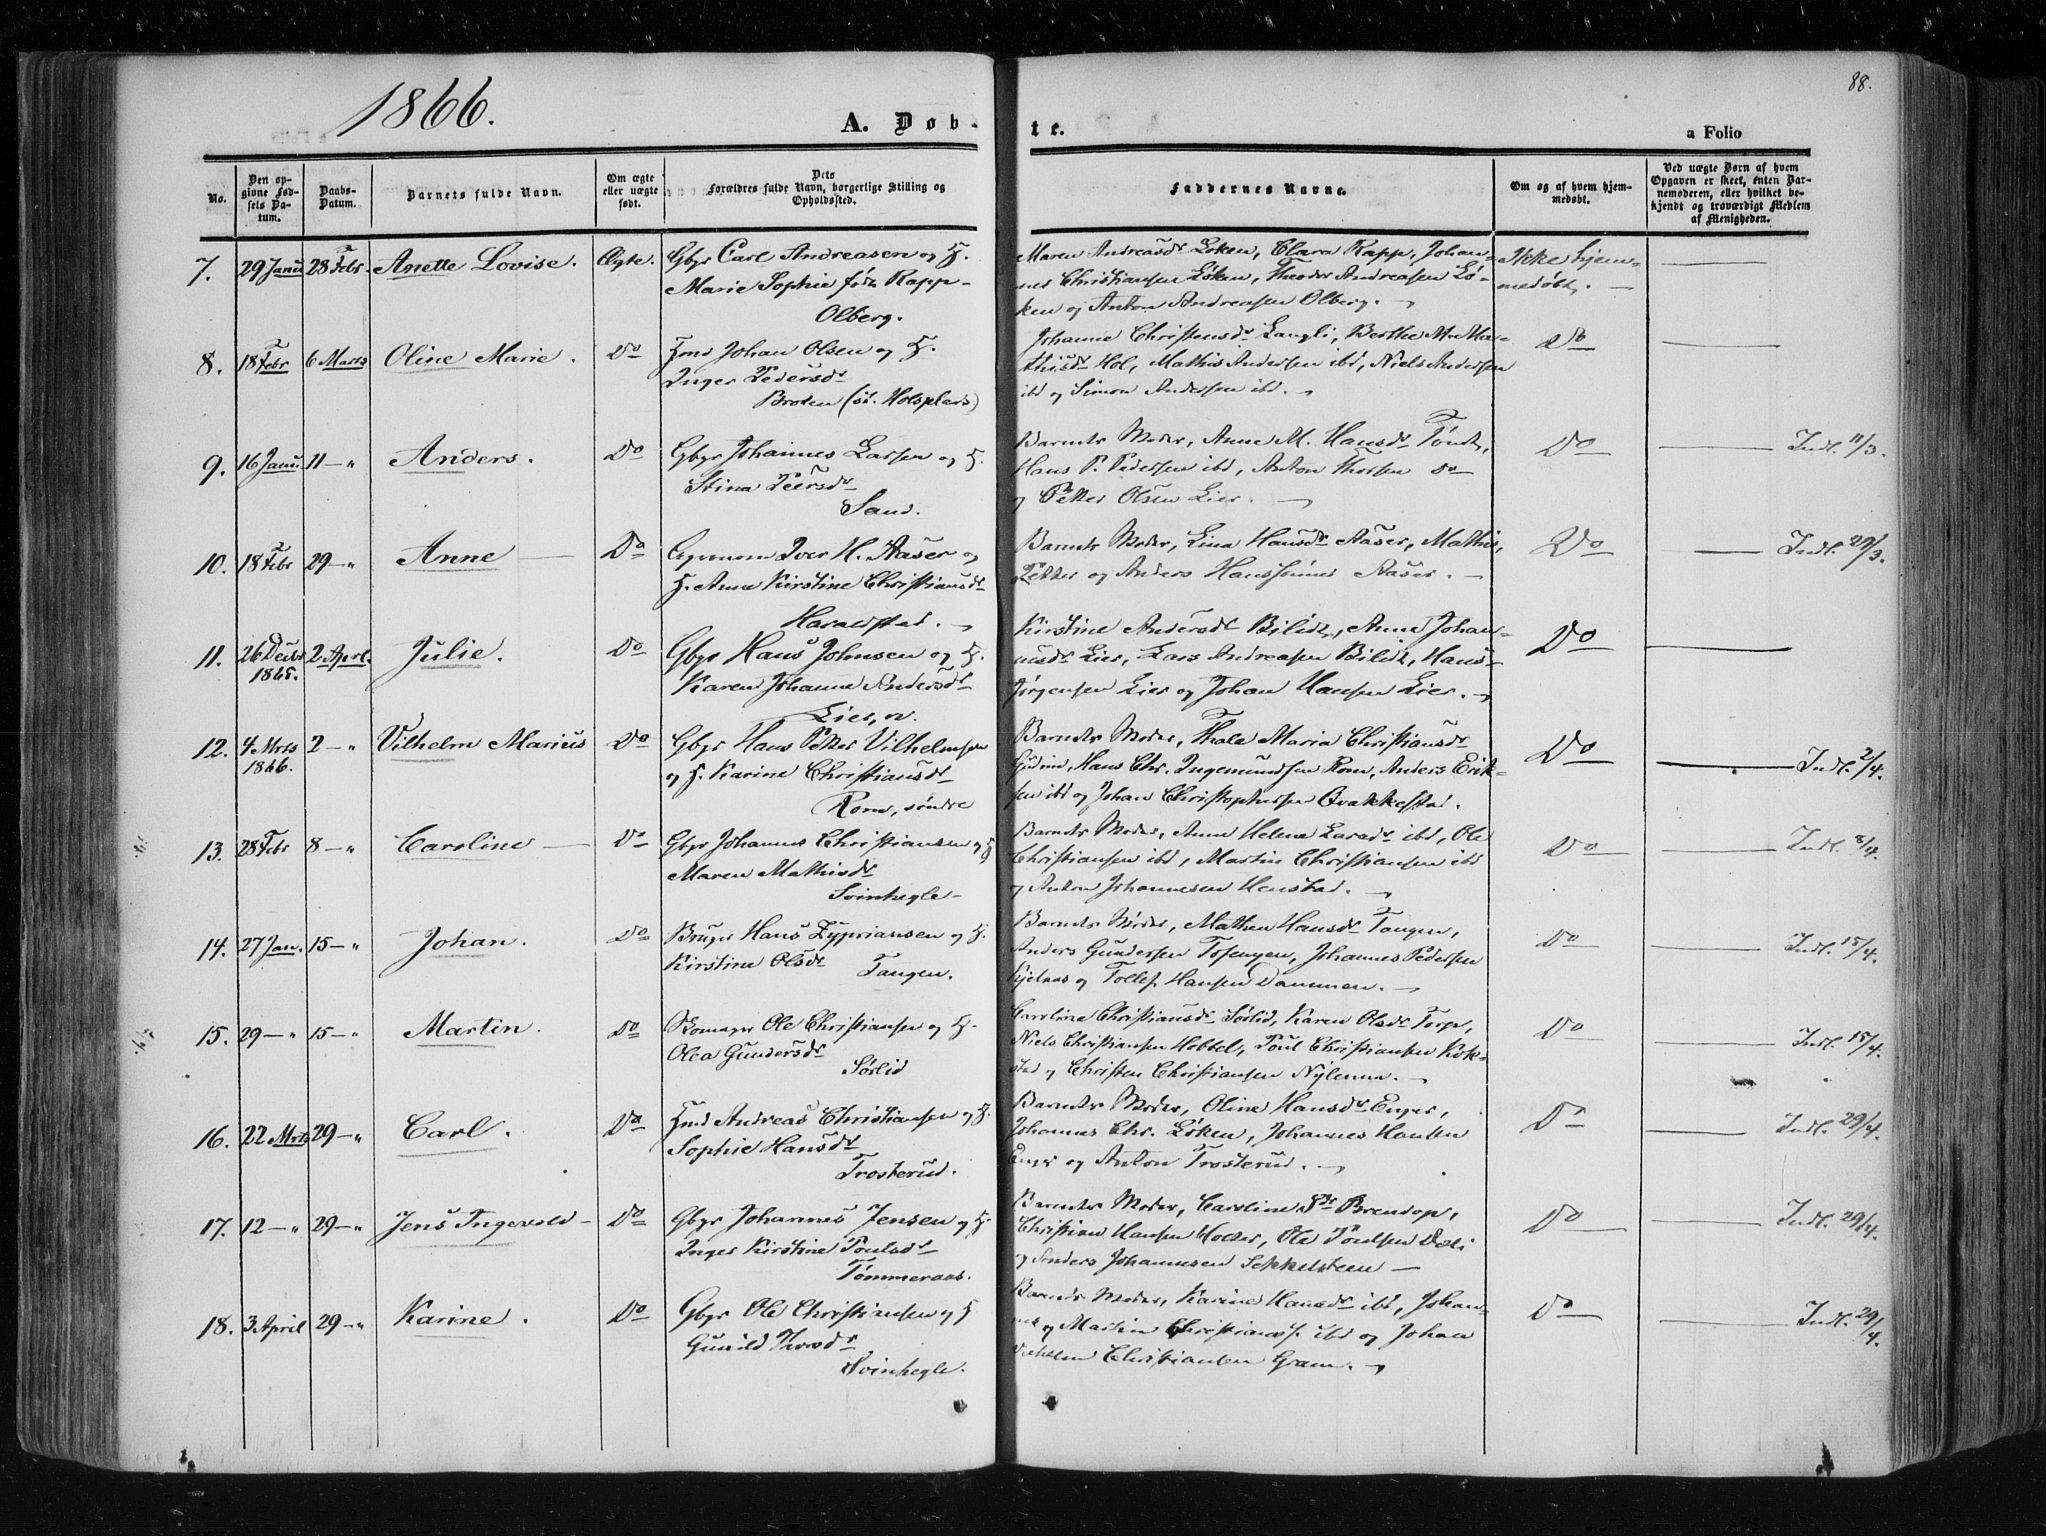 88.
1866.
A. Døb-
te.
a Folio
No.
Den op-
givne Fød-
sels Da-
tum.
Daabs-
Datum.
Barnets fulde Navn.
Om ægte
eller uægte
født.
Dets
Forældres fulde Navn, borgerlige Stilling og
Opholdssted.
Faddernes Navne.
Om og af hvem hjem-
medøbt.
Ved uægte Børn af hvem
Opgaven er skeet, enten Bar-
nemoderen, eller hvilket be-
kjendt og troværdigt Medlem
af Menigheden.
7. 29 Janu 28 Febr. Anette Lovise. Ægte. Gbgr Carl Andreasen og H.
Marie Sophie født Rapp-
Olberg.
Maren Andreasdr Løken, Clara Rapp, Johan-
nes Christiansen Løken, Theodor Andreasen Lø-
ken og Anton Andreasen Olberg.
Ikke hjem-
medøbt.
8. 18 Febr 6 Marts Oline Marie. Do Hmd Johan Olsen og H.
Inger Pedersdr
Broten (  Holsplads)
Johanne Christensdr Langli, Berthe M. Ma-
thisdr Hol, Mathis Andersen ibd, Niels Andersen
ibd og Simon Andersen ibd.
Do
9. 16 Janu. 11 - " Anders. Do Gbgr Johannes Larsen og H.
Stina Peersdr
Sand.
Barnets Moder, Anne M. Hansdr
Hans P. Pedersen ibd, Anton Thorsen do
og Petter Olsen Lier.
Do
Indl. 11/3.
10. 18 Febr 29 - " Anne Do Iver H. Aaser og
H. Anne Kirstine Christiansdr
Haraldstad.
Barnets Moder, Lina Hansdr Aaser, Mathis,
Petter og Anders Hanssønner Aaser.
Do
Indl. 29/3.
11. 26 Decbr
1865. 2 Aprl. Julie. Do Gbgr Hans Johnsen og H.
Karen Johanne Andersdr
Lier, n.
Kirstine Andersdr Bilidt, Anne Johan-
nesdr Lier, Lars Andreasen Bilidt, Hans
Jørgensen Lier og Johan Hansen Lier.
Do
12. 4 Mrts
1866. 2 - " Vilhelm Marius Do Gbgr Hans Petter Vilhelmsen
og H. Karine Christiansdr
Rom, søndre
Barnets Moder, Thale Maria Christiansdr
Gudim, Hans Chr. Ingemundsen Rom, Anders Erik-
sen ibd og Johan Christophersen Qvakkestad.
Do
Indl. 2/4.
13. 28 Febr 8 - " Caroline Do Gbgr Johannes Christiansen og H
Maren Mathisdr
Svinhegle-
Barnets Moder, Anne Helene Larsdr ibd, Ole
Christiansen ibd, Martin Christiansen ibd
og Anton Johannesen Henstad.
Do
Indl. 8/4.
14. 27 Jan. 15 - " Johan. Do Bruger Hans Zypriansen og H.
Kirstine Olsdr
Tangen.
Barnets Moder, Mathea Hansdr Tangen,
Anders Gundersen Tosengen, Johannes Pedersen
og Tollef Hansen Dammen.
Do
Indl. 15/4.
15. 29 - " 15 - " Martin. Do Skomager Ole Christiansen og H.
Olea Gundersdr
Sørlid
Caroline Christiansdr Sørlid, Karen Olsdr Torp,
Niels Christiansen Hobbel, Poul Christiansen Kok-
stad og Christen Christiansen Nylenna.
Do
Indl. 15/4.
16. 22 Mrts 29 - " Carl. Do Hmd Andreas Christiansen og H.
Sophie Hansdr
Trosterud.
Barnets Moder, Oline Hansdr Enger,
Johannes Chr. Løken, Johannes Hansen
Enger og Anton Trosterud.
Do
Indl. 29/4.
17. 12 - " 29 - " Jens Ingevald - Do Gbgr Johannes Jensen og H.
Inger Kirstine Poulsdr
Tømmeraas.
Barnets Moder, Caroline Brendop,
Christian Hansen Ole Poulsen Dæli
og Anders Johannesen Sekkelsteen
Do
Indl. 29/4.
18. 3 April 29 - " Karine. Do Gbgr Ole Christiansen og H
Gunild Thorsdr
Svinhegle.
Barnets Moder, Karine Hansdr ibd, Johan-
nes og Martin Christianss. ibd og Johan
Christiansen Gram.
Do
Indl. 29/4.